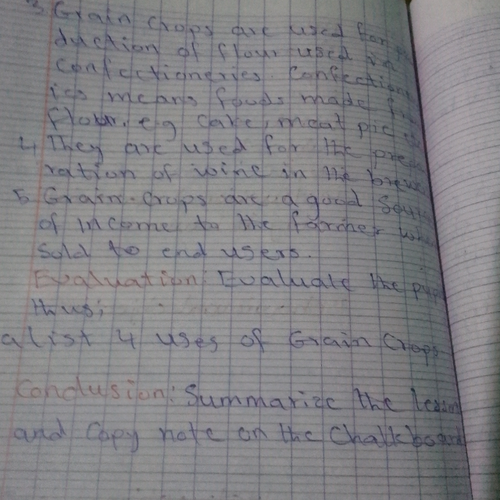 3. Grain crops are used for
duction of flour used in
confectioneries. Confection
ies means foods made f
flour. e.g cake, meat pie
4. They are used for the prep
ration of wine in the brew
5. Grain crops are a good sour
of income to the farmer whe
sold to end users.
Evaluation: Evaluate the pup
thus;
a list 4 uses of Grain Crops
Conclusion: Summarize the lesson
and copy note on the chalkboard